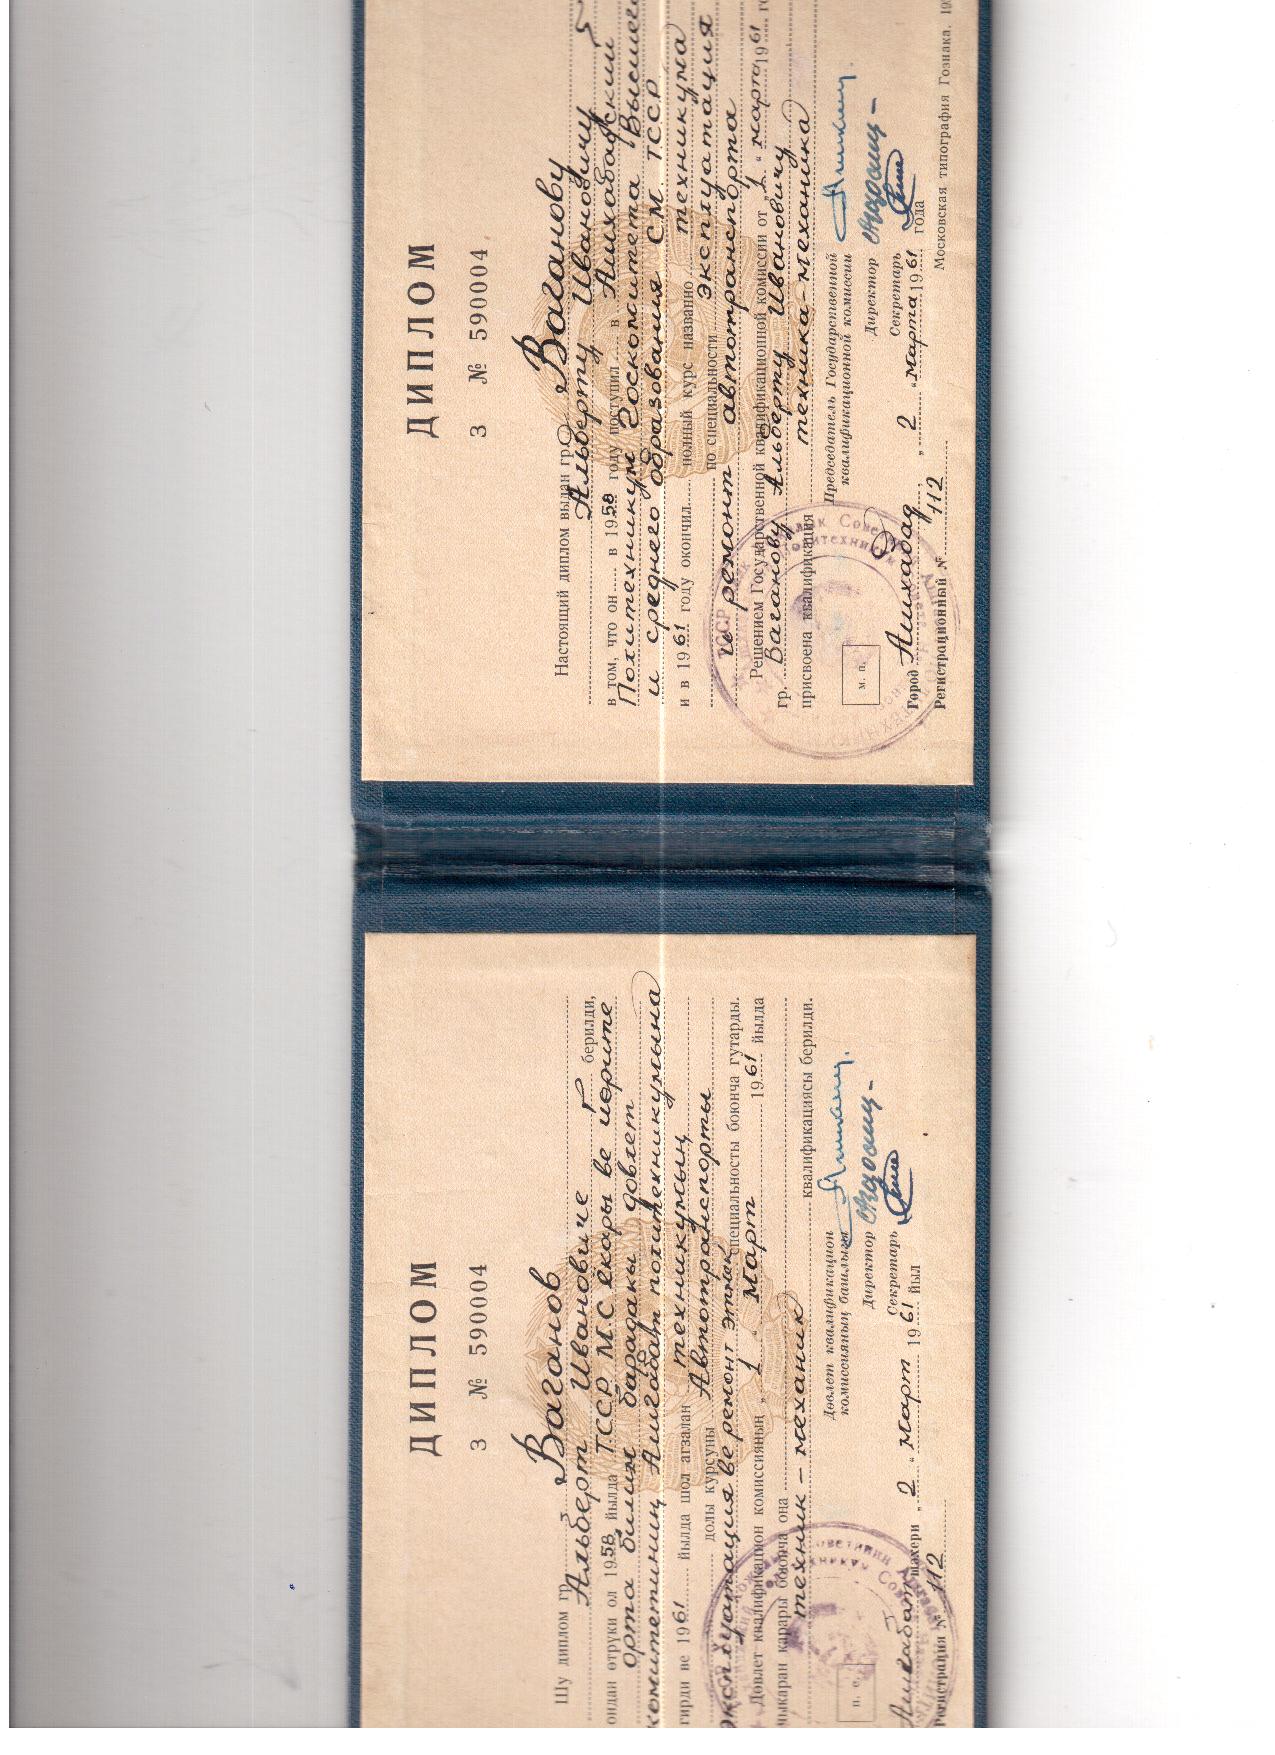 ДИПЛОМ
З № 590004
Шу диплом гр. Ваганов
Альберт Ивановиче берилди,
ондан отруки ол 1958 йылда ТССР М.С ёкары ве
орта билим барадакы довлет
комитетиниң Ашгабат политехникумына
гирди ве 1961 йылда шол агзалан техникумың
долы курсуны Автотранспорты
эксплуатация ве ремонт этмек специальносты боюнча гутарды.
Довлет квалификацион комиссияның „ 1 “ Март 1961 йылда
чыкаран карары боюнча она
техник – механик квалификациясы берилди.
Довлет квалификацион
комиссияның башлыгы
Директор
Секретарь
п. е.
Ашгабат шахери „ 2 “ Март 1961 йыл
Регистрация № 112
ДИПЛОМ
З № 590004
Настоящий диплом выдан гр. Ваганову
Альберту Ивановичу
в том, что он в 1958 году поступил в Ашхабадский
Политехникум Госкомитета Высшего
и среднего образования С.М. ТССР
и в 1961 году окончил полный курс названно техникума
по специальности Эксплуатация
и ремонт автотранспорта
Решением Государственной квалификационной комиссии от „ 1 “ марта 1961 г
гр. Ваганову Альберту Ивановичу
присвоена квалификация техника-механика
Председатель Государственной
квалификационной комиссии
Директор
Секретарь
м. п.
Город Ашхабад, „ 2 “ марта 1961 года
Регистрационный № 112
Московская типография Гознака. 19